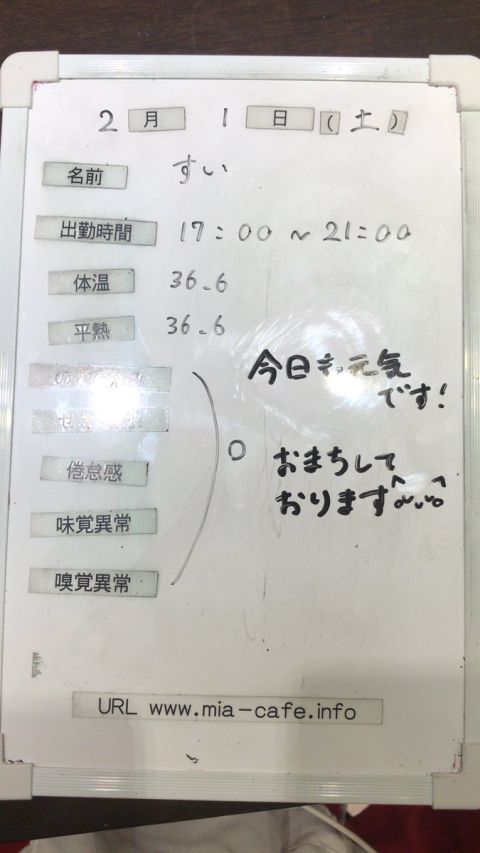 2月 1日(土)
名前 すい
出勤時間 17:00 ~ 21:00
体温 36.6
平熱 36.6
倦怠感 0
味覚異常
嗅覚異常
今日も元気
です!
おまちして
おります
URL www.mia-cafe.info